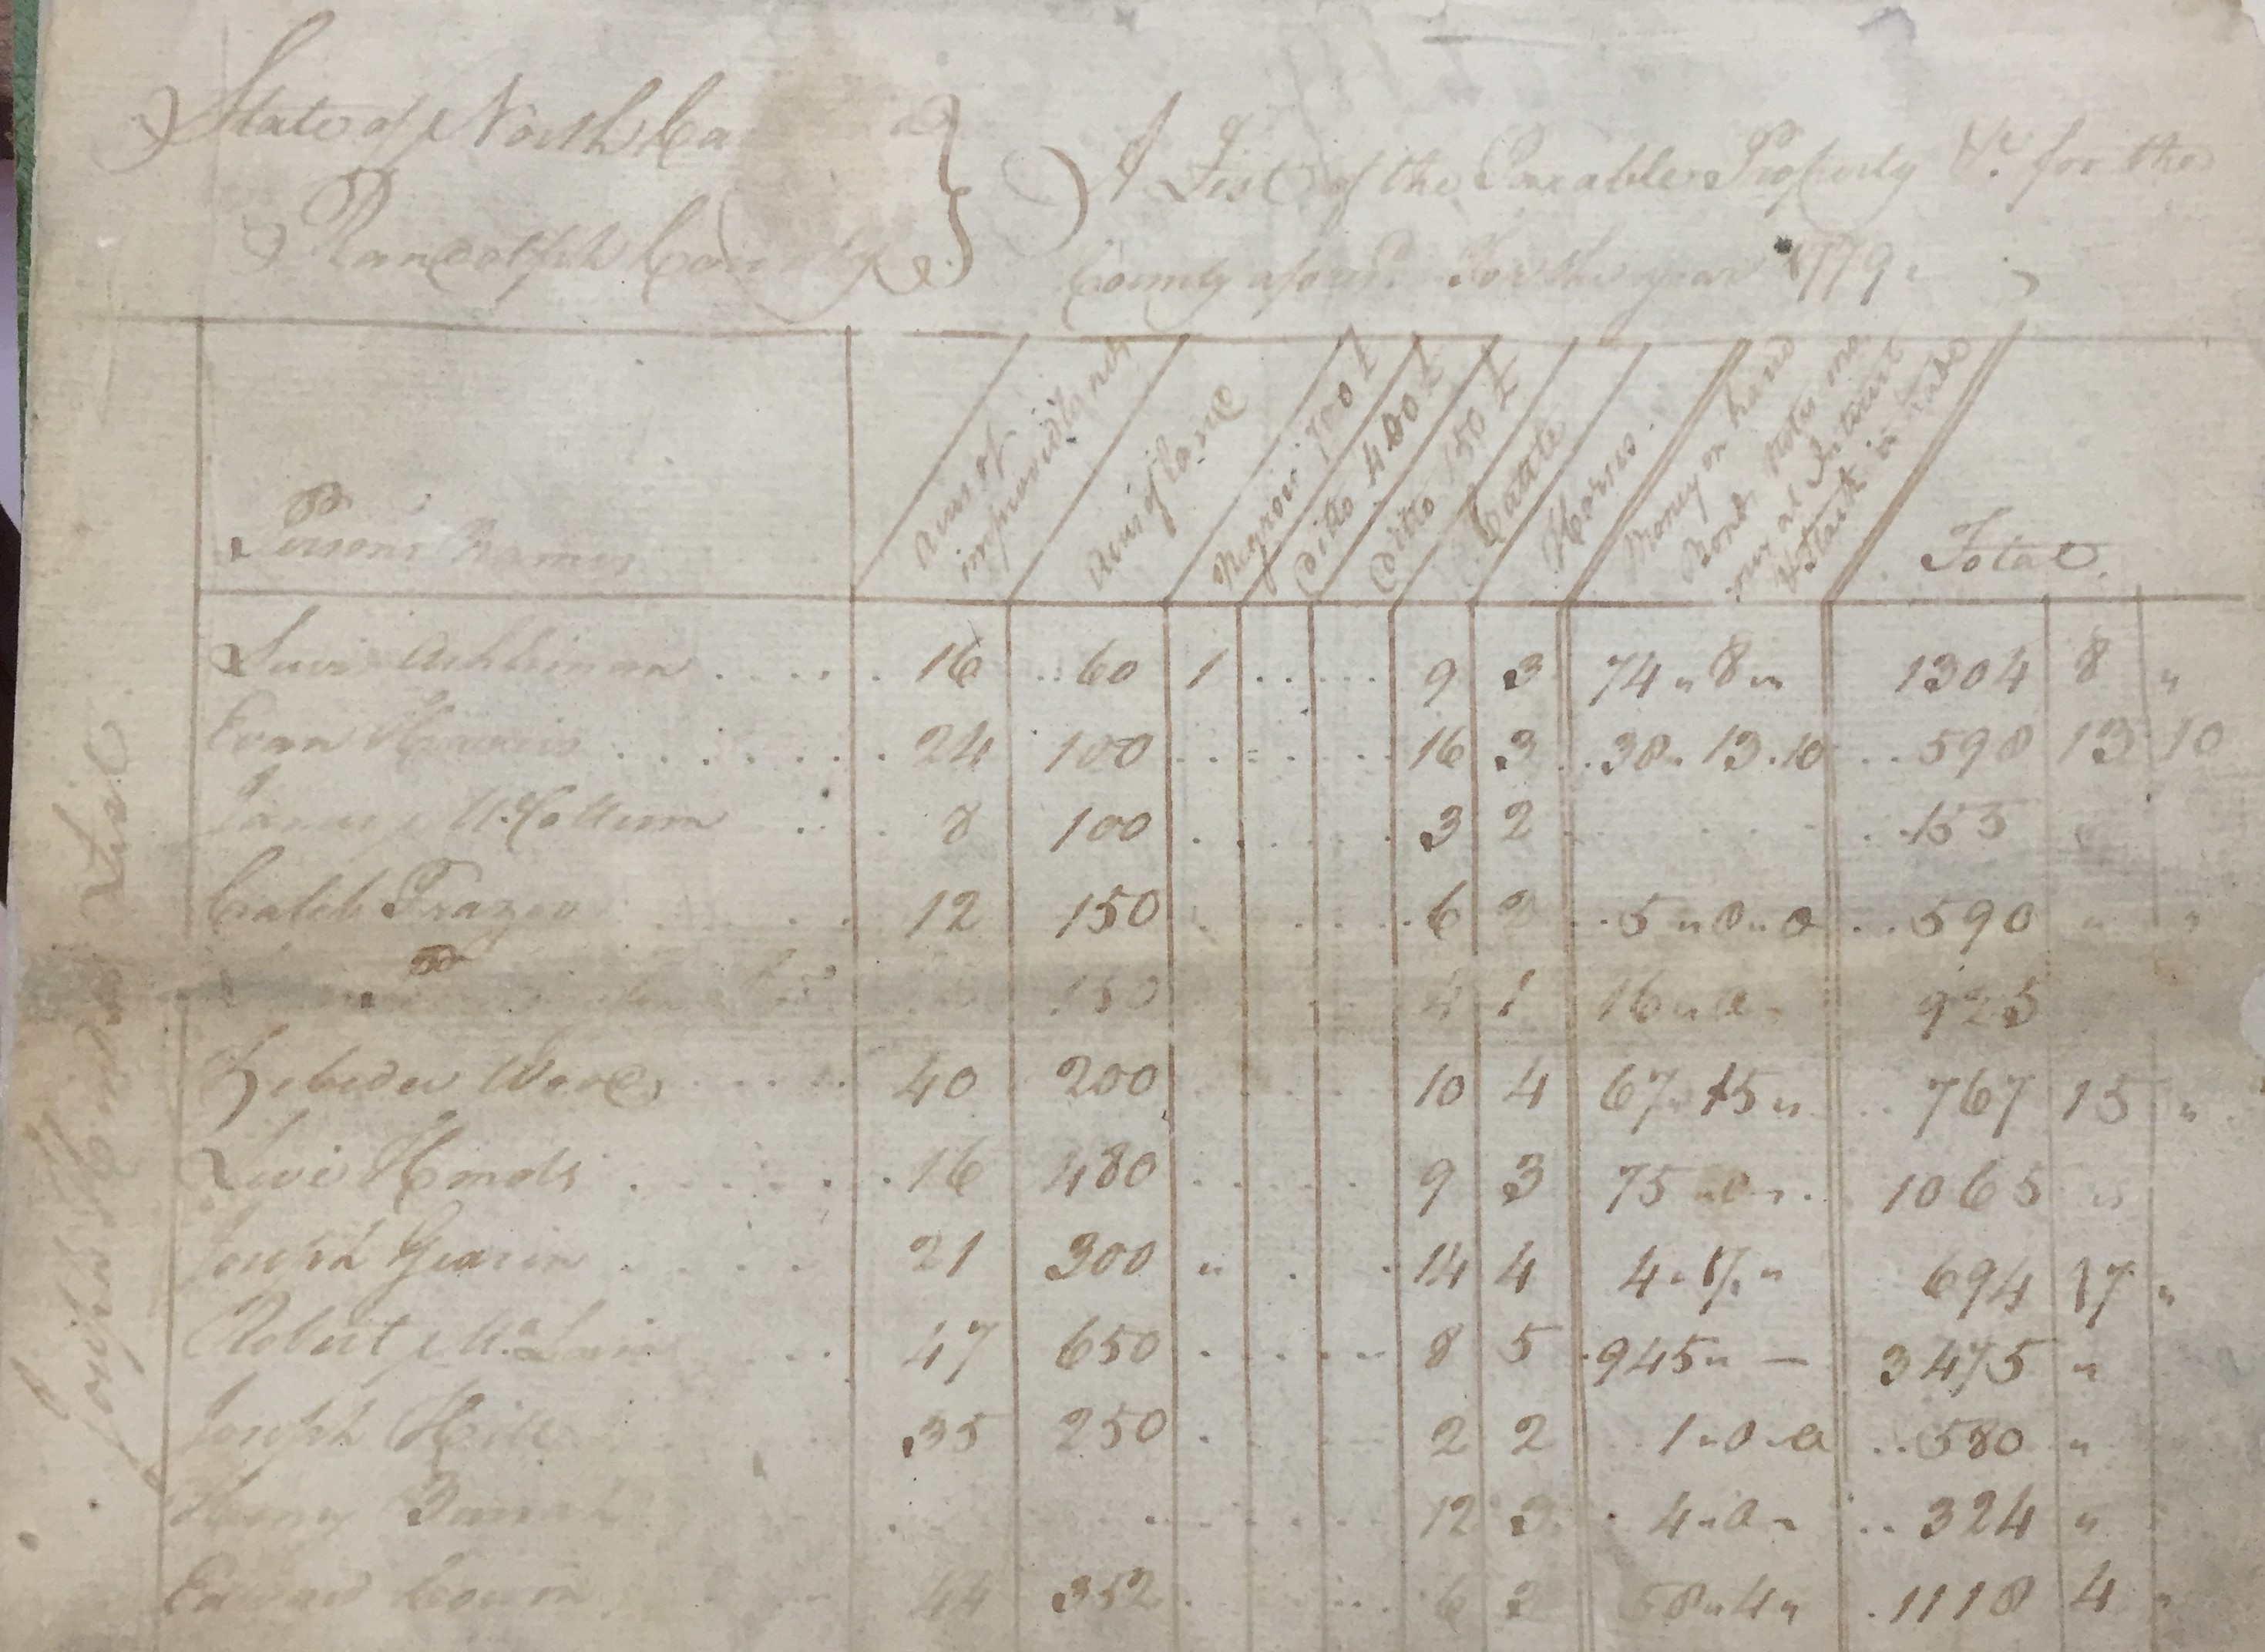 State of North Ca
Randolph County
A List of the Taxable Property &c. for the
County afores.d For the year 1779.
Persons Names
Acres of improved Lands
Acres of Land
Negroes 700 £
Ditto 400 £
Ditto 150 £
Cattle
Horses.
Money on hand Bonds Notes at Interest Stock in trade
Total.
Joseph Hinds List
Levi 16 60 1 9 3 74 " 8 " 1304 8 "
Evan 24 100 16 3 38 " 13 . 10 598 13 10
James McCollum 8 100 3 2 155
Caleb Frazer 12 150 6 2 5 " 0 " 0 590 " "
150 4 1 16 " 0 " 925
Zebedee Wood 40 200 10 4 67 " 15 " 767 15 "
Levi Hinds 16 480 9 3 75 " 0 " 1065 "
Joseph Gearin 21 300 " 14 4 4 " 17 " 694 17 "
Robert McLain 47 650 8 5 945 " — 3475 "
Joseph Hill 35 250 2 2 1 " 0 " 0 580 "
Henry 12 3 4 " 0 " 324 "
Edward 44 352 6 2 58 " 4 " 1118 4 "